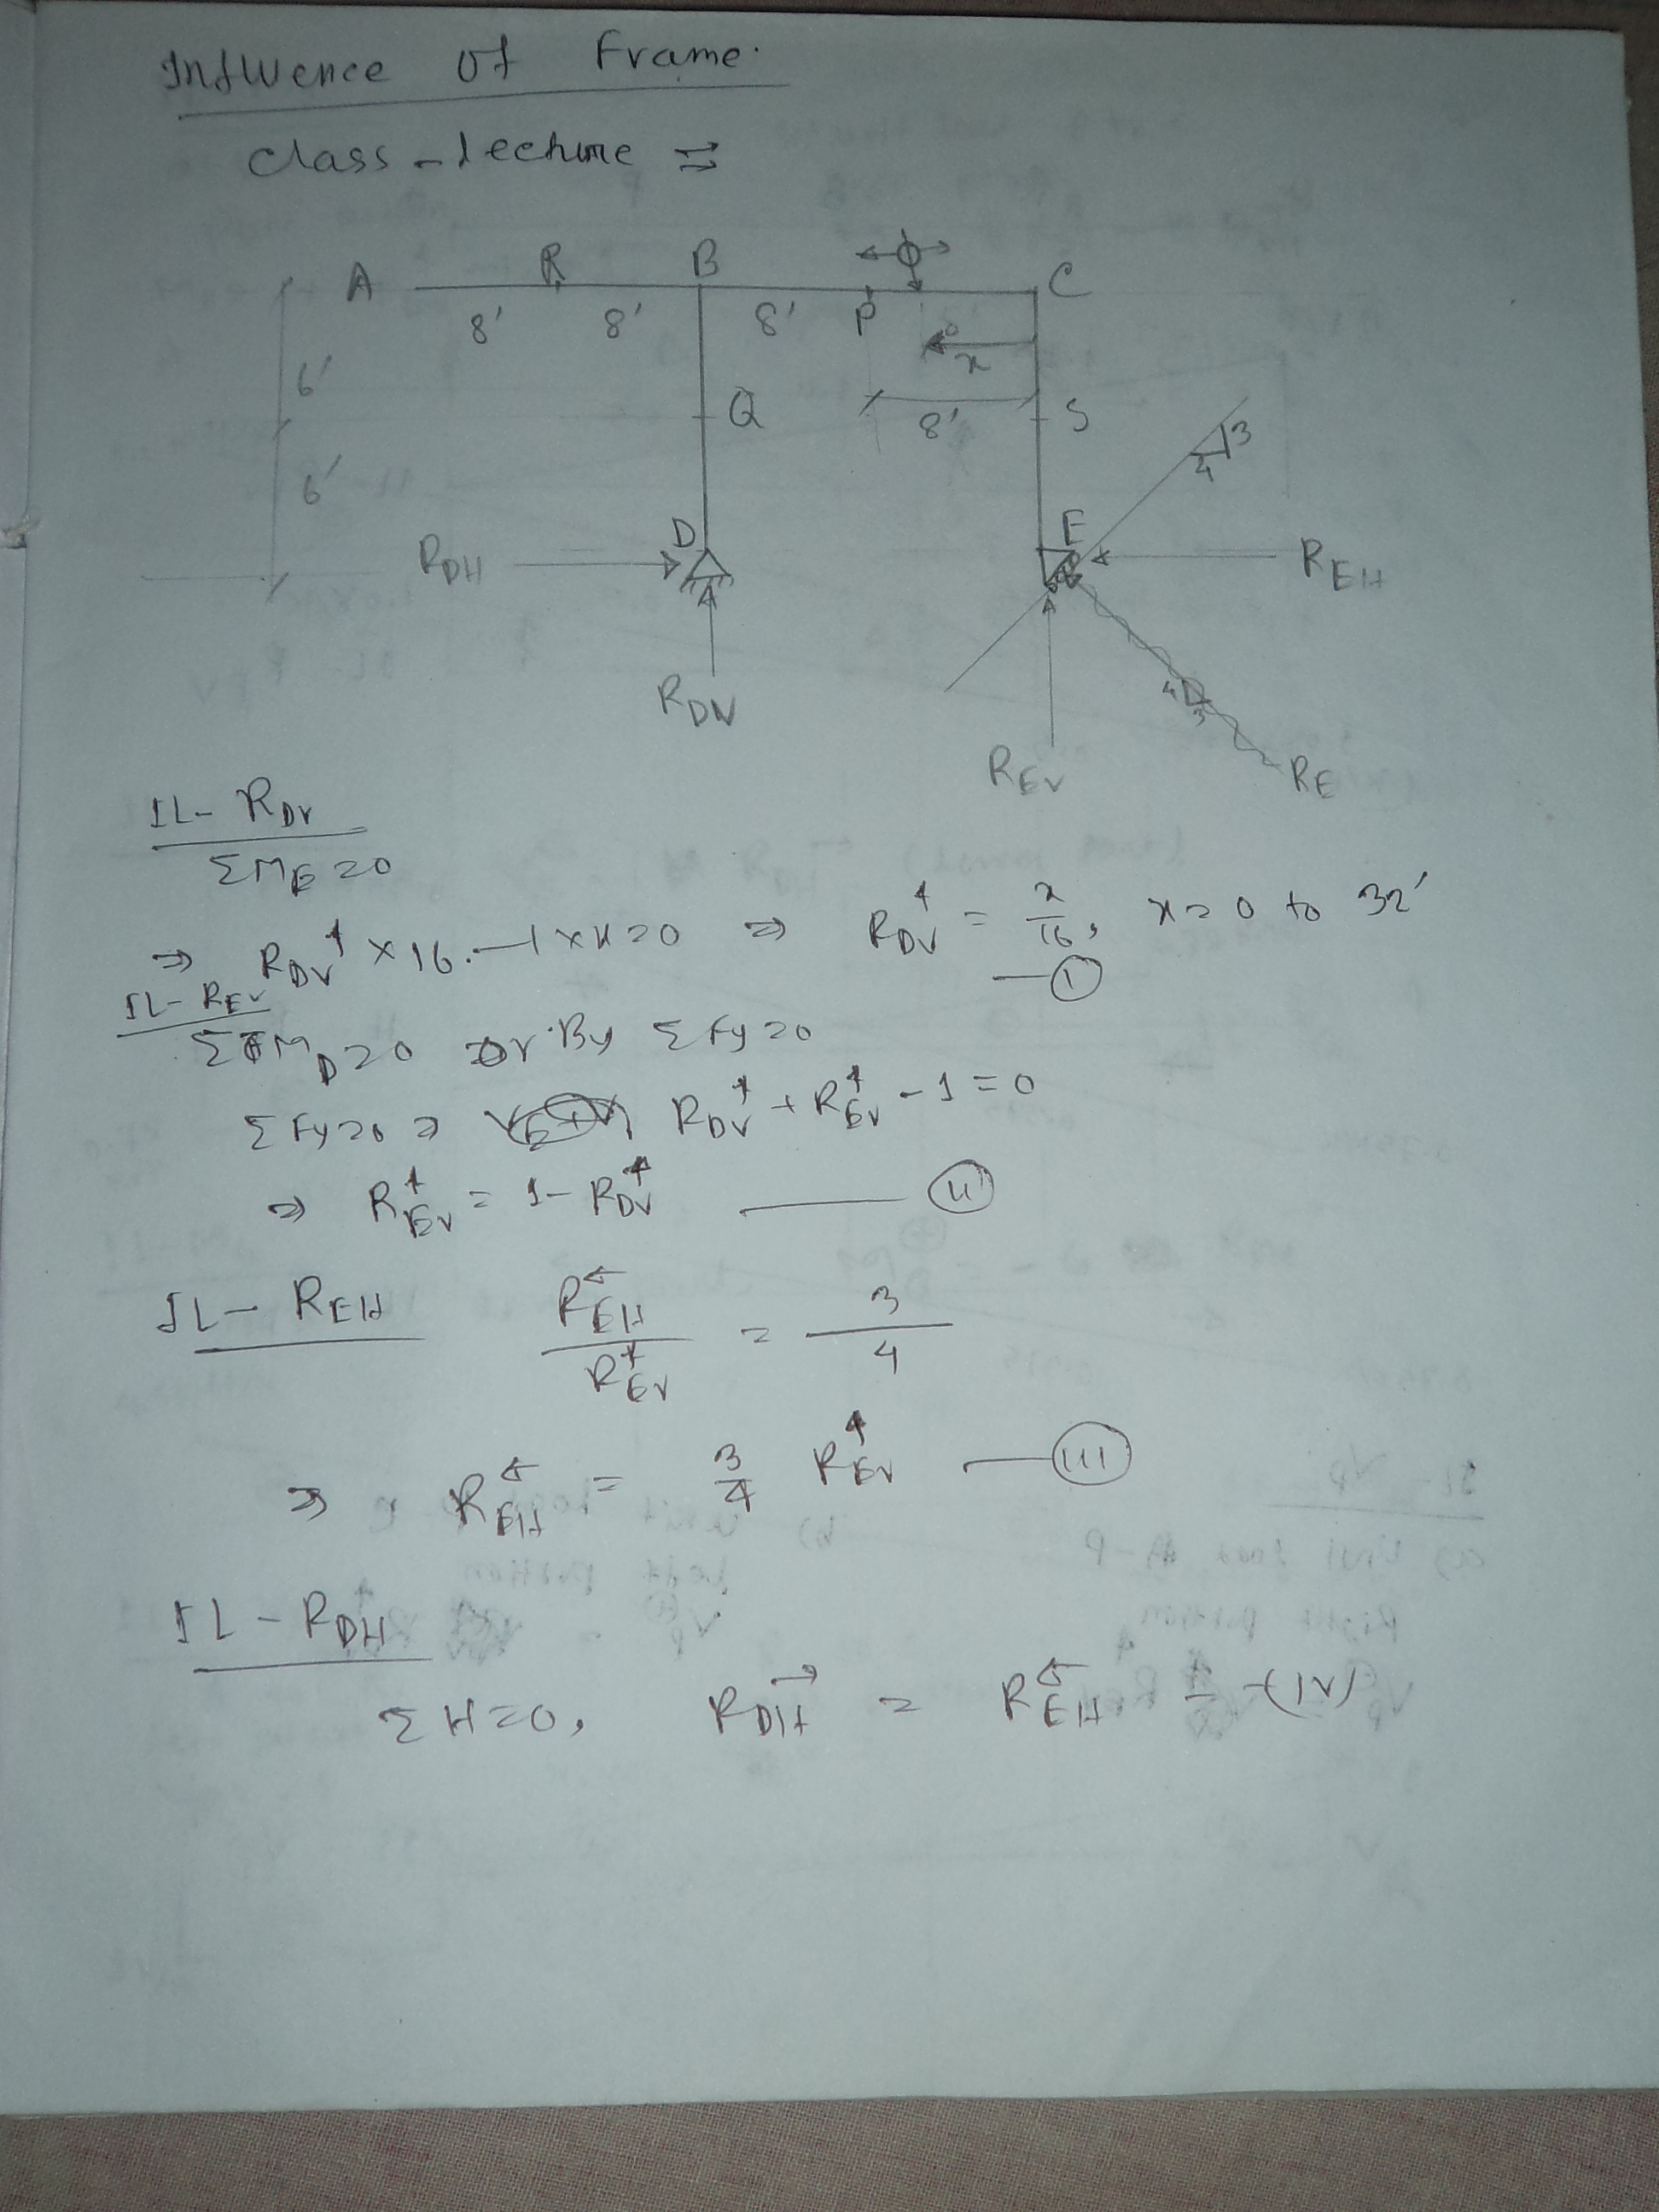 Influence of Frame.
class-lecture ⇒
A R B C
8' 8' 8' P
x
6' Q 8' S
3
4
6'
D E
R_DH R_EH
R_DV
4
3
R_EV R_E
IL- R_DV
ΣM_E = 0
⇒ R_DV↑ × 16 - 1 × x = 0 ⇒ R_DV↑ = x/16, x = 0 to 32'
— (I)
IL- R_EV
ΣM_D = 0 or By ΣFy = 0
ΣFy = 0 ⇒ R_DV↑ + R_EV↑ - 1 = 0
⇒ R_EV↑ = 1 - R_DV↑ — (II)
IL - R_EH R_EH←/R_EV↑ = 3/4
⇒ R_EH← = 3/4 R_EV↑ — (III)
IL - R_DH
ΣH = 0, R_DH→ = R_EH← — (IV)